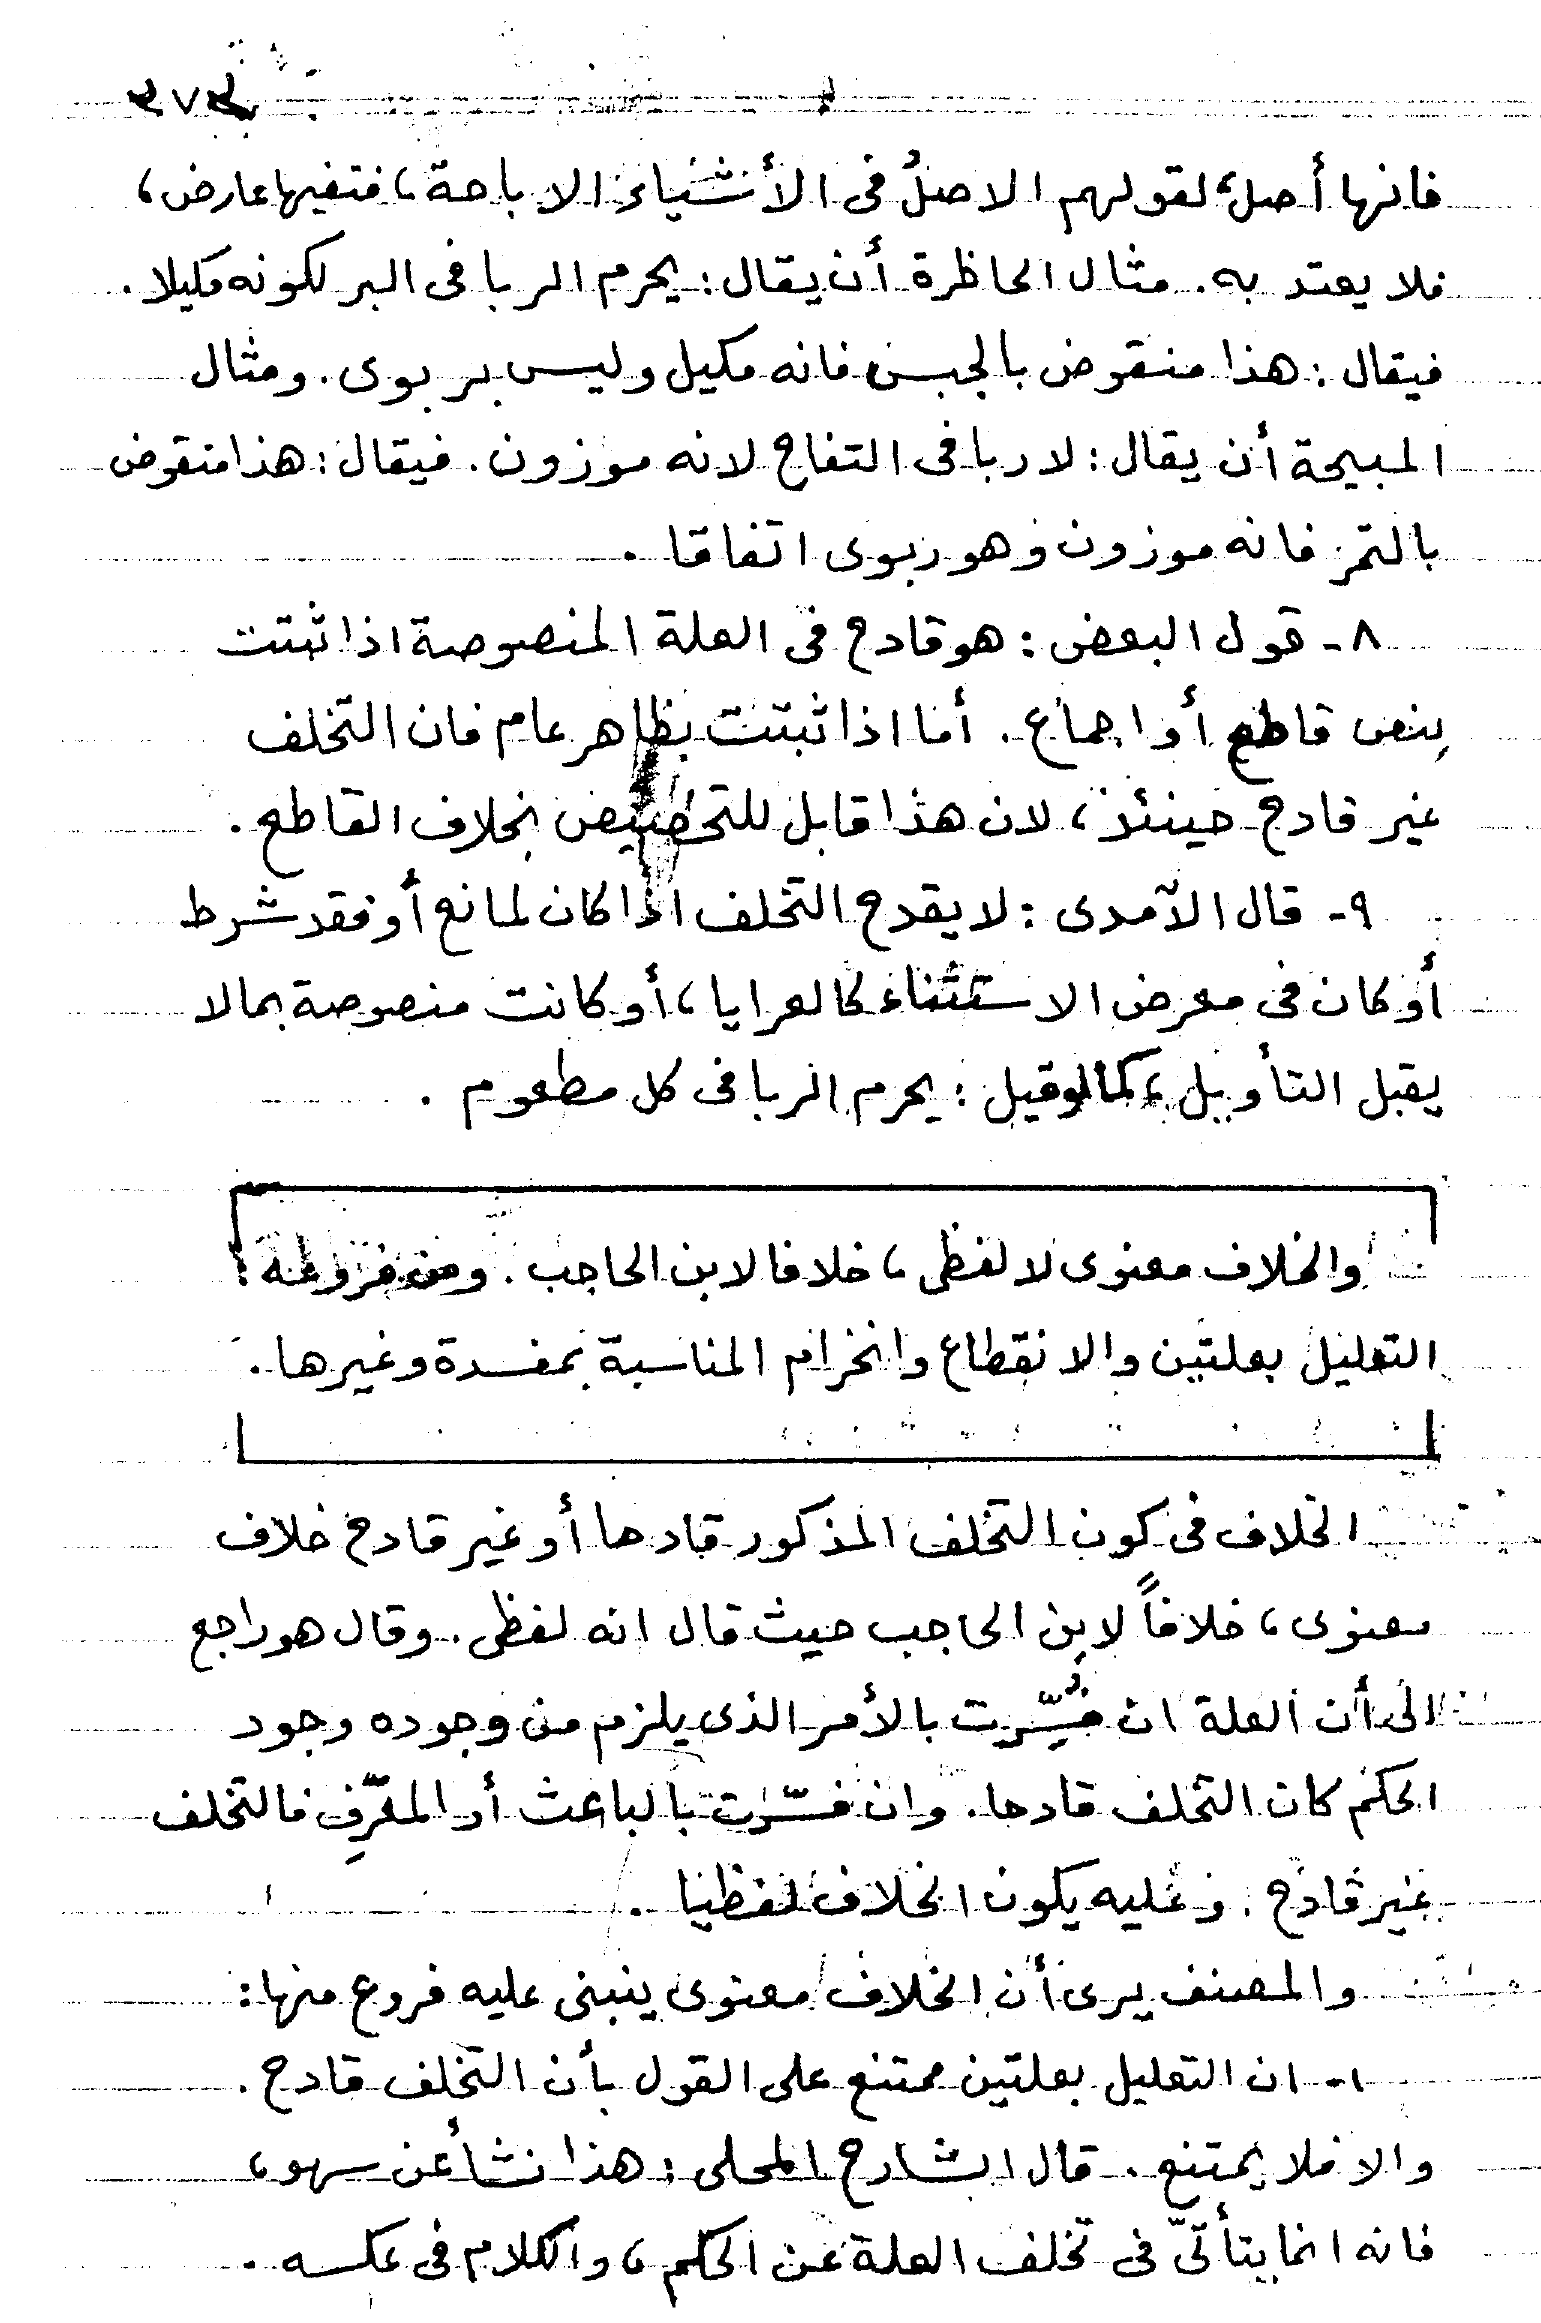 ٣٧٣
فانها أصل، لقولهم الاصلُ فى الأشياء الاباحة، فتفيها عارض،
فلا يعتد به. مثال الحاظرة أن يقال: يحرم الربا فى البر لكونه مكيلا.
فيقال: هذا منقوض بالجبس فانه مكيل وليس بربوى. ومثال
المبيحة أن يقال: لا ربا فى التفاح لانه موزون. فيقال: هذا منقوض
بالتمر فانه موزون وهو ربوى اتفاقا.
٨- قول البعض: هو قادح فى العلة المنصوصة اذا ثبتت
بنص قاطع أو اجماع. أما اذا ثبتت بظاهر عام فان التخلف
غير قادح حينئذ، لان هذا قابل للتخصيص بخلاف القاطع.
٩- قال الآمدى: لا يقدح التخلف اذا كان لمانع أو فقد شرط
أو كان فى معرض الاستثناء كالعرايا، أو كانت منصوصة بمالا
يقبل التأويل، كما لو قيل: يحرم الربا فى كل مطعوم.
والخلاف معنوى لا لفظى، خلافا لابن الحاجب. ومن فروعه:
التعليل بعلتين والانقطاع وانخرام المناسبة بمفسدة وغيرها.
الخلاف فى كون التخلف المذكور قادحا أو غير قادح خلاف
معنوى، خلافاً لابن الحاجب حيث قال انه لفظى. وقال هو راجع
الى أن العلة ان فُسِّرت بالأمر الذى يلزم من وجوده وجود
الحكم كان التخلف قادحا. وان فسّرت بالباعث أو المعرِّف فالتخلف
غير قادح. وعليه يكون الخلاف لفظيا.
والمصنف يرى أن الخلاف معنوى ينبنى عليه فروع منها:
١- ان التعليل بعلتين ممتنع على القول بأن التخلف قادح.
والا فلا يمتنع. قال الشارح المحلى: هذا نشأ عن سهو،
فانه انما يتأتّى فى تخلف العلة عن الحكم، والكلام فى عكسه.